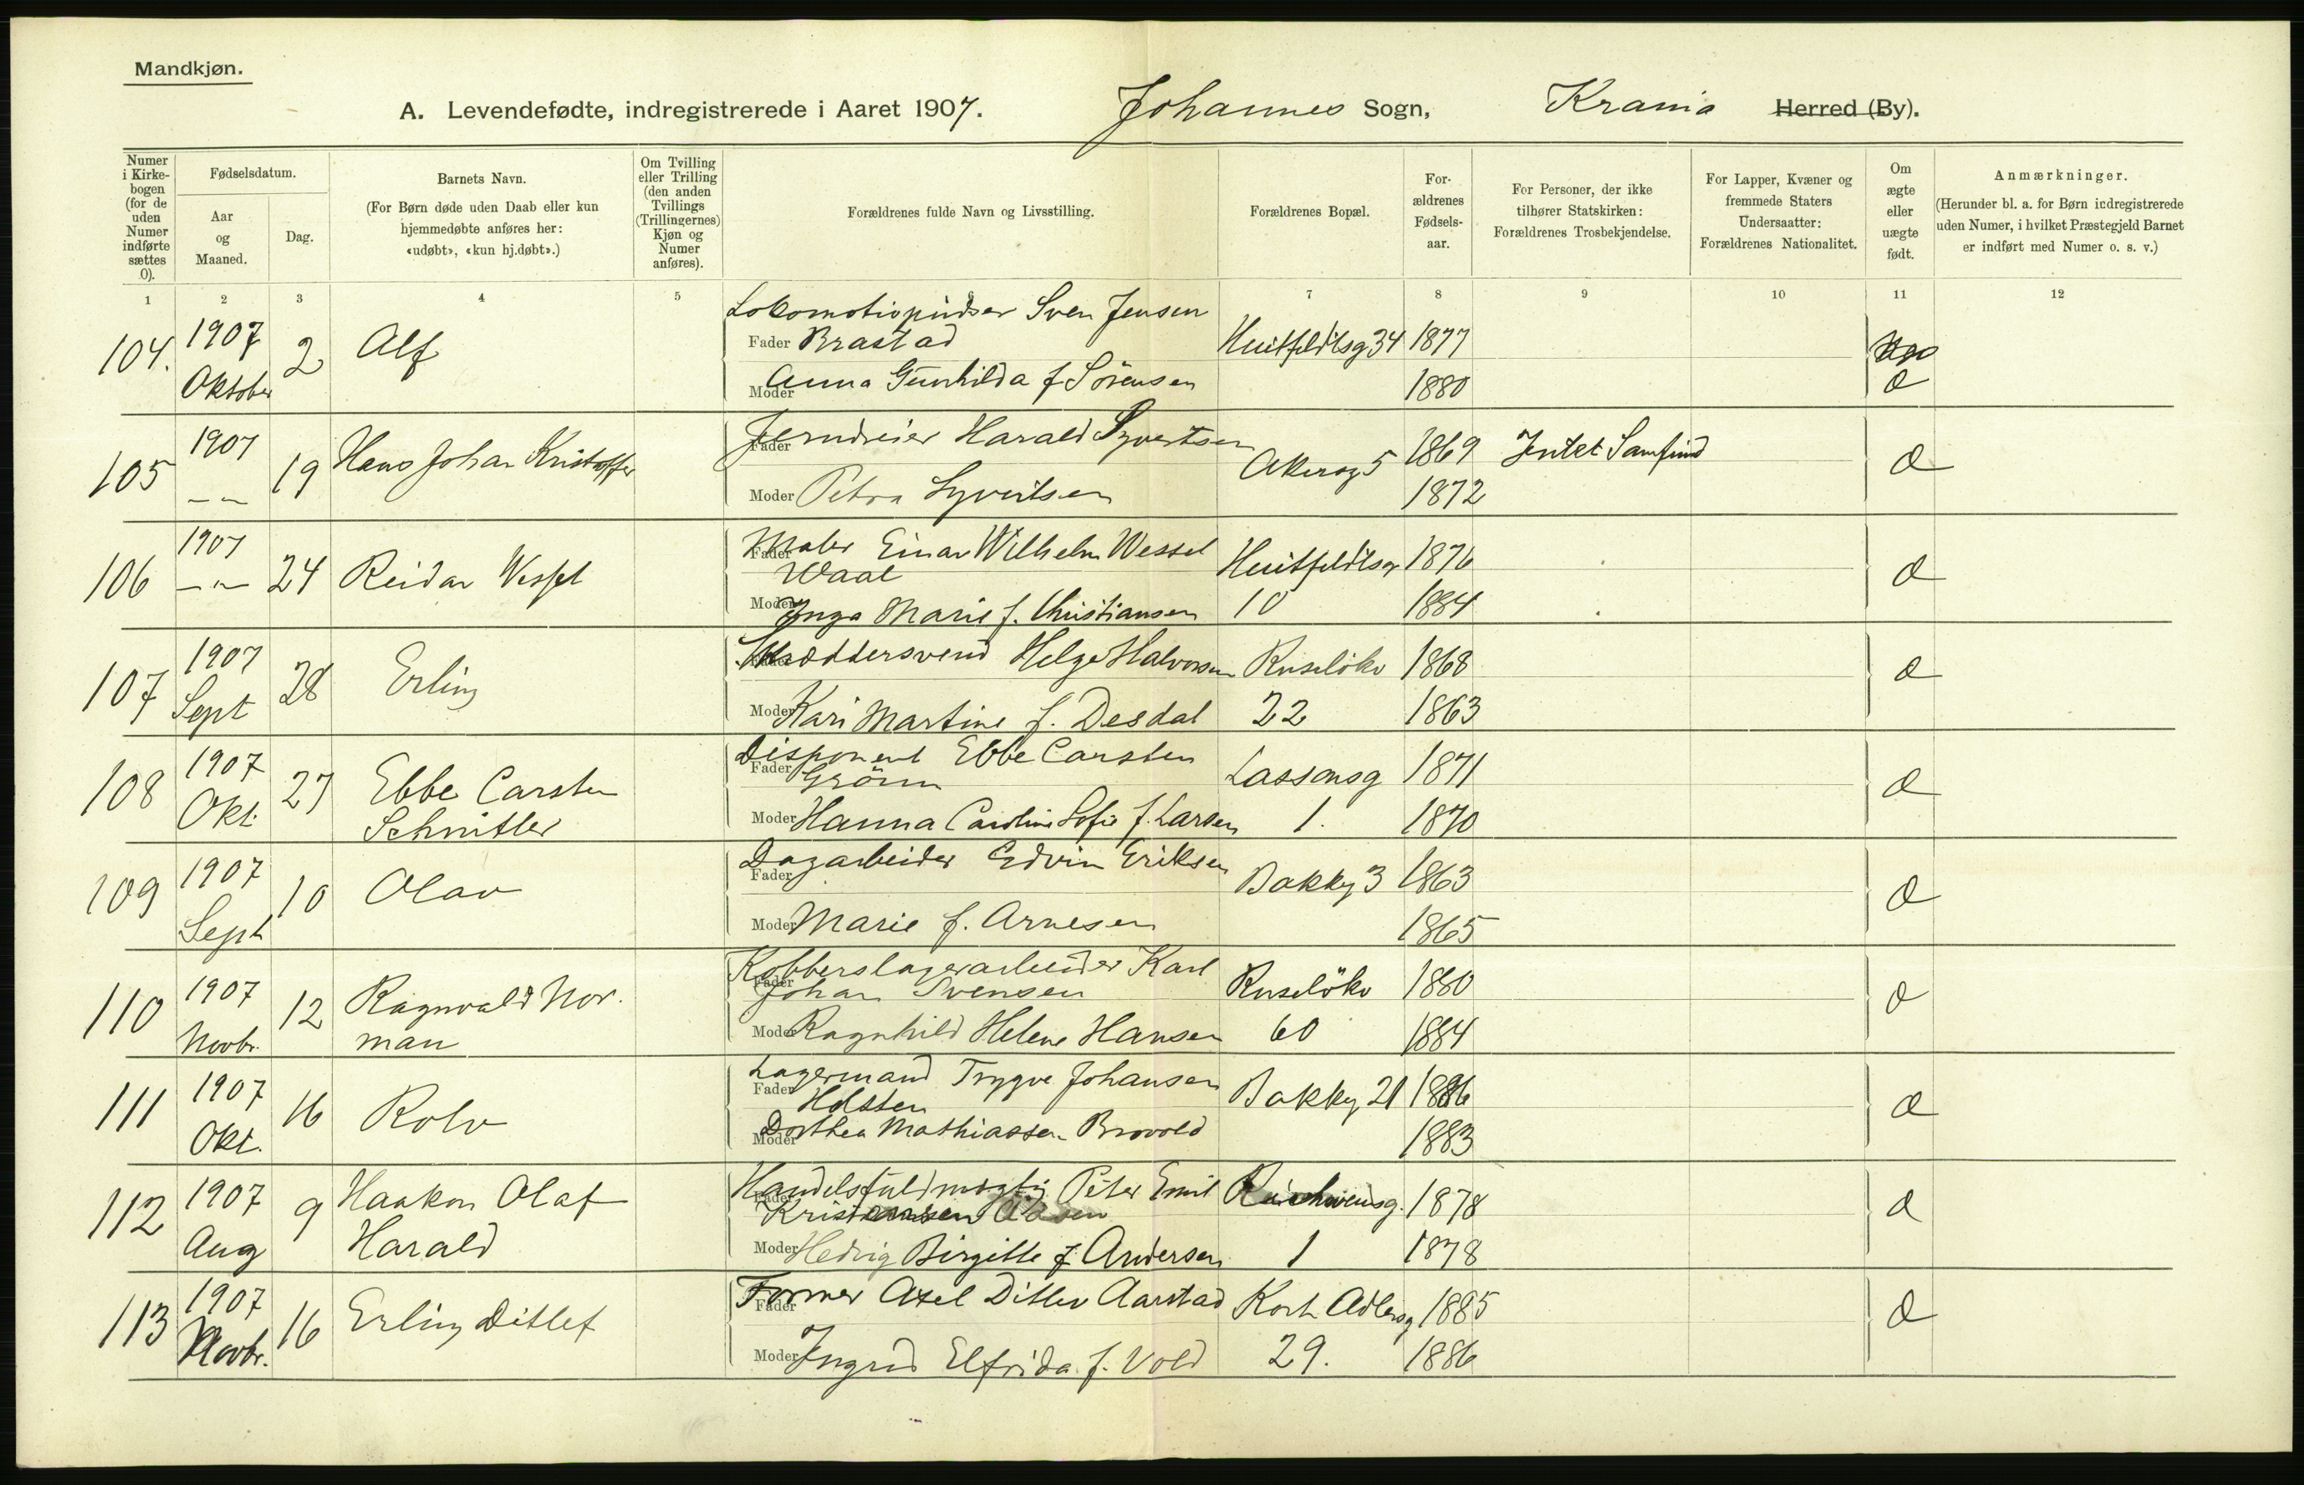 Mandkjøn.
A. Levendefødte, indregistrerede i Aaret 1907. Johannes Sogn, Krania Herred (By).
Numer i Kirkebogen (for de uden Numer indførte sættes 0).
Fødselsdatum.
Aar og Maaned.
Dag.
Barnets Navn.
(For Børn døde uden Daab eller kun hjemmedøbte anføres her: «udøbt», «kun hj.døbt».)
Om Tvilling eller Trilling (den anden Tvillings (Trillingernes) Kjøn og Numer anføres).
Forældrenes fulde Navn og Livsstilling.
Forældrenes Bopæl.
Forældrenes Fødselsaar.
For Personer, der ikke tilhører Statskirken: Forældrenes Trosbekjendelse.
For Lapper, Kvæner og fremmede Staters Undersaatter: Forældrenes Nationalitet.
Om ægte eller uægte født.
Anmærkninger.
(Herunder bl. a. for Børn indregistrerede uden Numer, i hvilket Præstegjeld Barnet er indført med Numer o. s. v.)
1 2 3 4 5 6 7 8 9 10 11 12
104. 1907 Oktober 2 Alf
Lokomotivpudser Sven Jensen
Fader Brastad Huitfeldtsg 34 1877
Moder Anna Gunhilda f Sörensen 1880
105 1907 — „ — 19 Hans Johan Kristoffer
Fader Jerndreier Harald Syvertsen Akersg 5 1869 Intet Samfund
Moder Petra Syvertsen 1872
106 1907 — „ — 24 Reidar Wessel
Fader Maler Einar Wilhelm Wessel Huitfeldtsg 1876
Waal
Moder Inga Marie f. Christiansen 10 1884
107 1907 Sept 28 Erling
Fader Skræddersvend Helge Halvorsen Ruselökv 1868
Moder Kari Martine f. Desdal 22 1863
108 1907 Okt. 27 Ebbe Carsten Schnitler
Fader Disponent Ebbe Carsten
Grönn Lassonsg 1871
Moder Hanna Caroline Sofie f. Larsen 1. 1870
109 1907 Sept 10 Olav
Fader Dagarbeider Edvin Eriksen Bakkg 3 1863
Moder Marie f. Arnesen 1865
110 1907 Novbr. 12 Ragnvald Norman
Fader Kobberslagerarbeider Karl
Johan Svensen Ruselökv 1880
Moder Ragnhild Helene Hansen 60 1884
111 1907 Okt. 16 Rolv
Fader Lagermand Trygve Johansen
Holsten Bakkg 21 1886
Moder Dorthea Mathiassen Brovold 1883
112 1907 Aug 9 Haakon Olaf Harald
Fader Handelsfuldmægtig Peter Emil
Kristensen 1878
Moder Hedvig Birgitte f Andersen 1 1878
113 1907 Novbr. 16 Erling Ditlef
Fader Former Axel Ditlev Aarstad Kort Adlersg 1885
Moder Ingrid Elfrida f. Vold 29. 1886